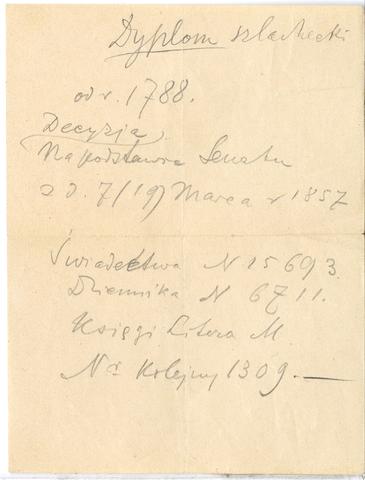 Dyplom szlachecki
od r. 1788.
Decyzja
Na podstawie Senatu
z d. 7/19 Marca r 1857
Świadectwa N 15693.
Dziennika N 6711.
Księgi Litera M.
Nr Kolejny 1309.—